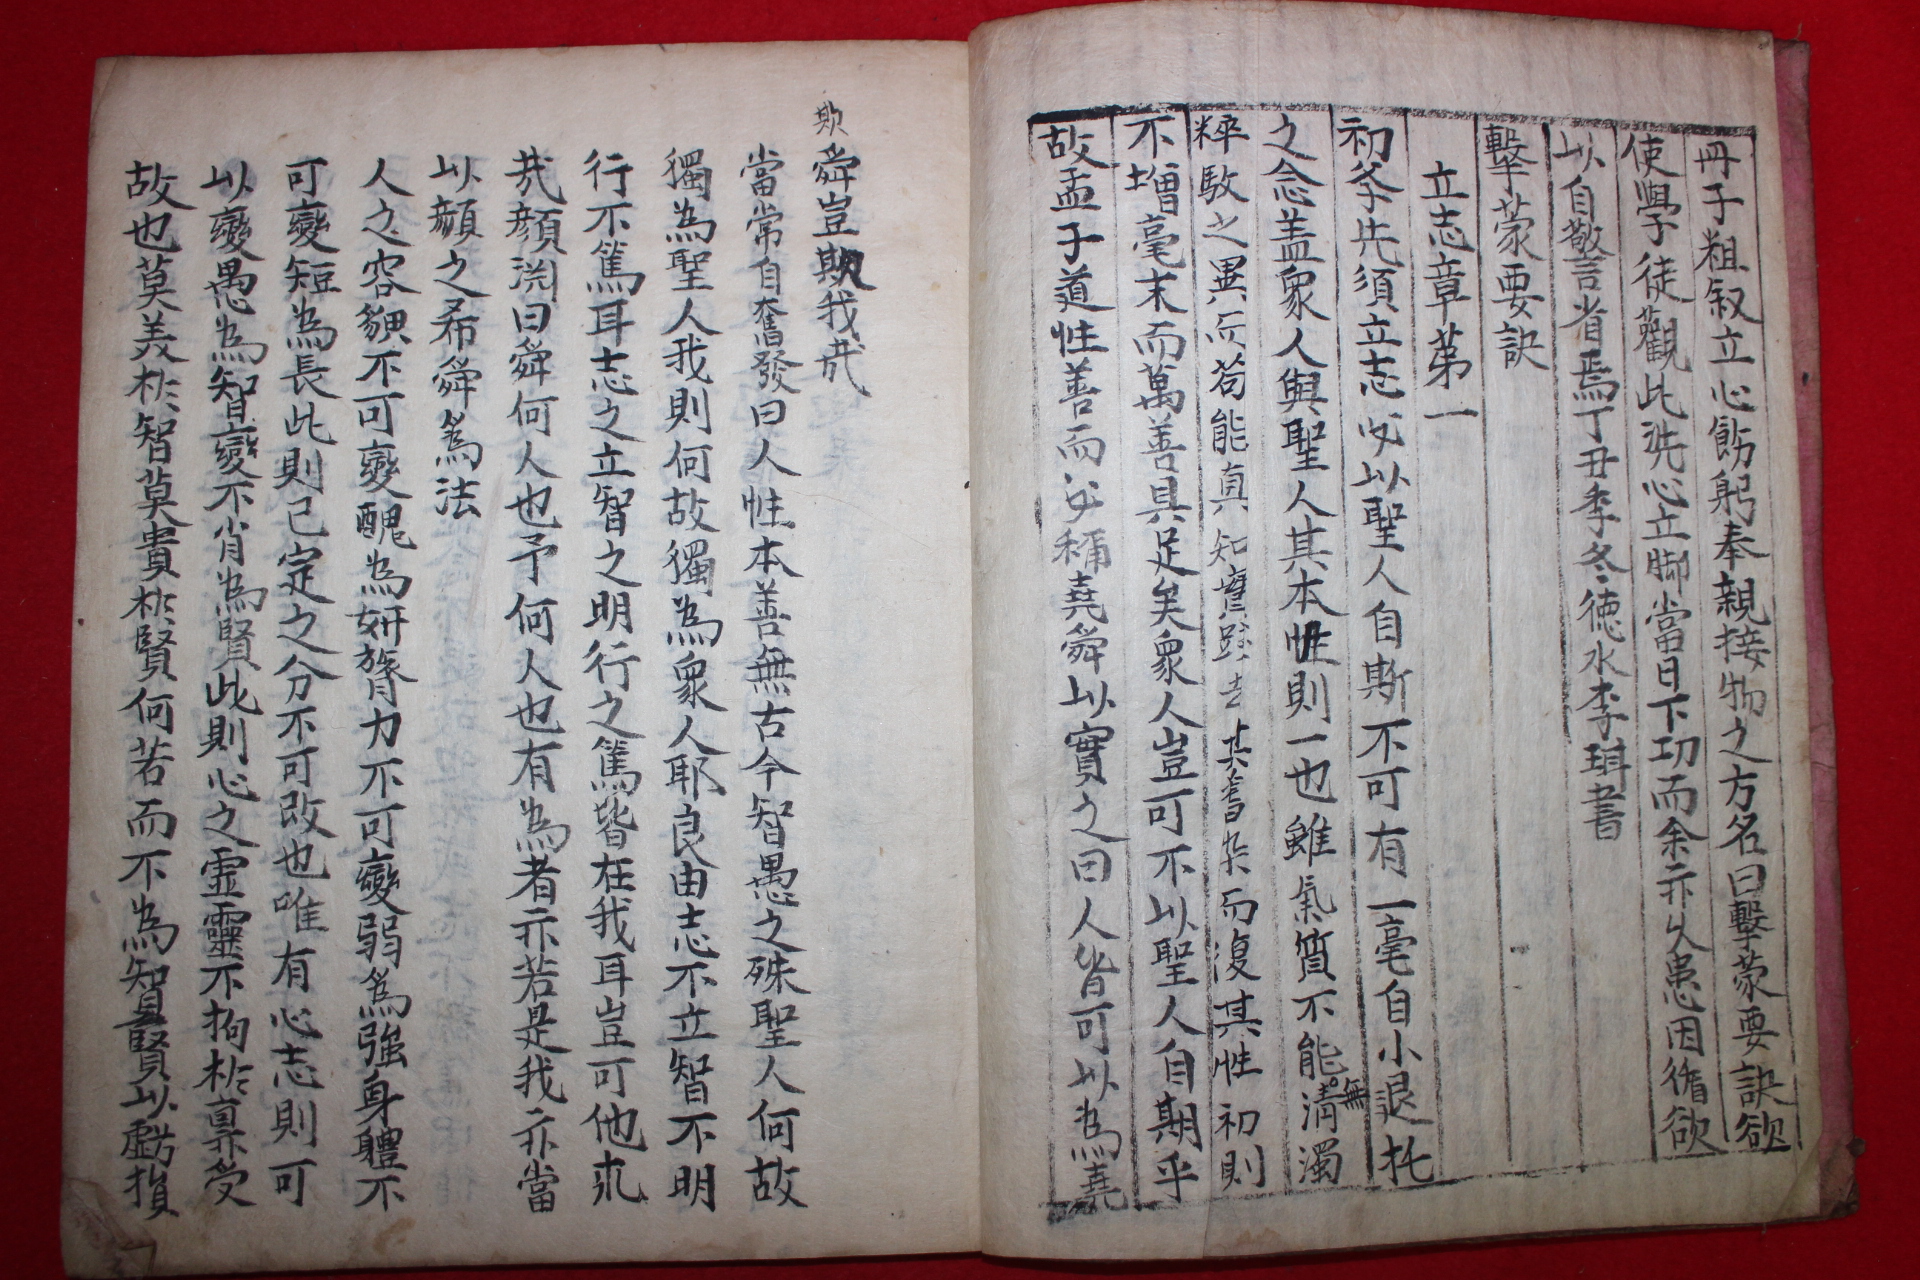 冊子粗叙立心飭躬奉親接物之方名曰擊蒙要訣欲
使學徒觀此洗心立脚當日下功而余亦久患因循欲
以自警省焉丁丑季冬德水李珥書
擊蒙要訣
立志章第一
初学先須立志必以聖人自斯不可有一毫自小退托
之念盖衆人與聖人其本性則一也雖氣質不能無清濁
粹駁之異而苟能真知實踐去其舊染而復其性初則
不增毫末而萬善具足矣衆人豈可不以聖人自期乎
故孟子道性善而必稱堯舜以實之曰人皆可以為堯
欺
舜豈欺我哉
當常自奮發曰人性本善無古今智愚之殊聖人何故
獨為聖人我則何故獨為衆人耶良由志不立智不明
行不篤耳志之立智之明行之篤皆在我耳豈可他求
哉顔淵曰舜何人也予何人也有為者亦若是我亦當
以顔之希舜為法
人之容貌不可變醜為妍膂力不可變弱為強身體不
可變短為長此則已定之分不可改也唯有心志則可
以變愚為智變不肖為賢此則心之虛靈不拘於稟受
故也莫美於智莫貴於賢何若而不為賢以虧損